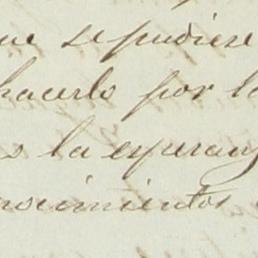 ue se pudiese
hacerlo por lo
s la esperanz
nscimientos